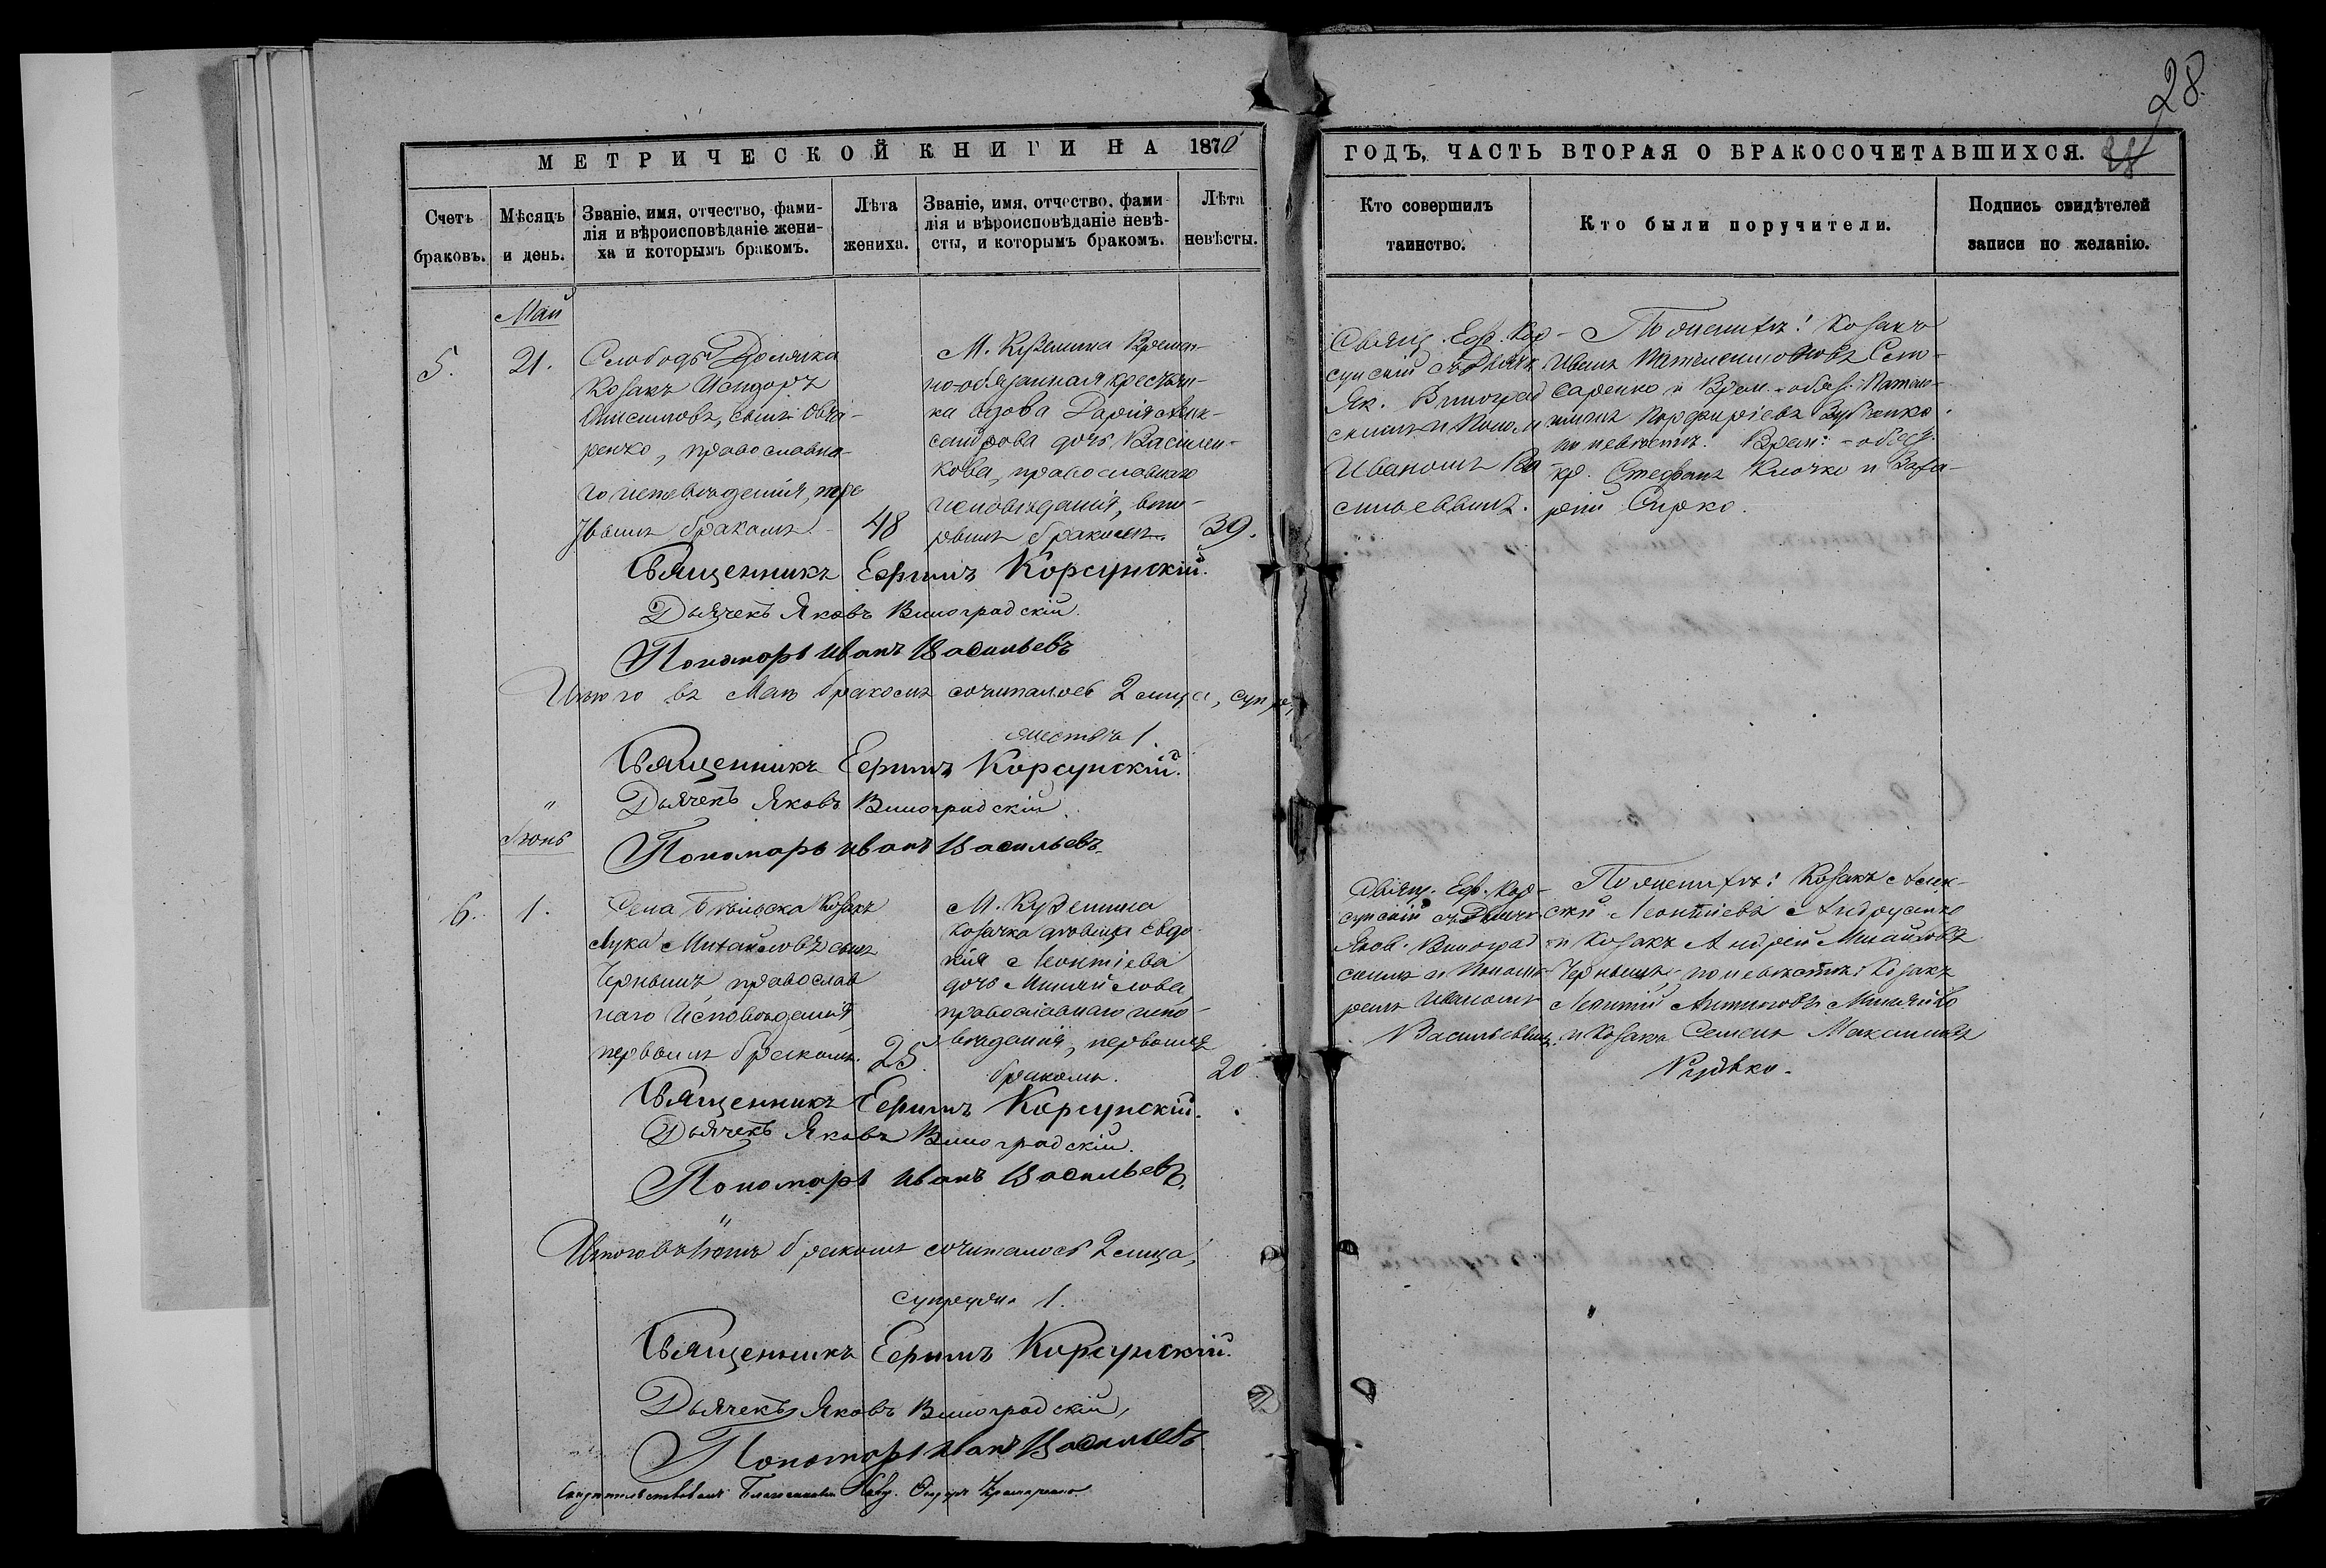 28.
МЕТРИЧЕСКОЙ КНИГИ НА 1870
ГОДЪ, ЧАСТЬ ВТОРАЯ О БРАКОСОЧЕТАВШИХСЯ.
28
Счетъ
браковъ.
Мѣсяцъ
и день.
Званіе, имя, отчество, фами-
лія и вѣроисповѣданіе жени-
ха и которымъ бракомъ.
Лѣта
жениха.
Званіе, имя, отчество, фами-
лія и вѣроисповѣданіе невѣ-
сты, и которымъ бракомъ.
Лѣта
невѣсты.
Кто совершилъ
таинство.
Кто были поручители.
Подпись свидѣтелей
записи по желанію.
Май
5.
21.
Слободы
Козакъ Исидоръ
Онисимовъ, сынъ Овча-
ренко, православна-
го исповѣданія, тре
тьимъ бракомъ.
48
М. Куземина Времен-
но-обязанная крестьян-
ка вдова Дарія Алек-
сандрова дочь Василен-
кова, православнаго
исповѣданія, вто-
рымъ бракомъ.
39.
Священ. Еф. Кор-
сунскій съ Дьячк.
Як. Виноград
скимъ и Поном
Иваномъ Ва
сильевымъ.
По женихѣ: Козакъ
Иванъ
саренко и Врем.-обяз.
Порфиріевъ
по невѣстѣ: Врем:-обяз.
кр. Стефанъ Клочко и Заха-
рій Сирко.
Священникъ Ефимъ Корсунскій.
Дьячекъ Яковъ Виноградскій.
Пономарь Иванъ Васильевъ
Итого въ Маѣ бракомъ сочиталось 2 лица, супру-
жествъ 1.
Священникъ Ефимъ Корсунскій.
Дьячекъ Яковъ Виноградскій.
Пономарь Иванъ Васильевъ.
Іюнь
6.
1.
Села Бѣльска Козакъ
Лука Михайловъ сынъ
Чернышъ, православ
наго Исповѣданія,
первымъ бракомъ.
25.
М. Куземина
козачка дѣвица Евдо-
кія Леонтіева
дочь Миняйлова,
православнаго испо-
вѣданія, первымъ
бракомъ.
20.
Священ. Еф. Кор-
сунскій съ Дьячк.
Яков. Виноград
скимъ и Понома-
ремъ Иваномъ
Васильевымъ.
По женихѣ: Козакъ Алек-
сѣй Леонтіевъ Андрусенко
и Козакъ Андрей Михайловъ
Чернышъ, по невѣстѣ: Козакъ
Леонтій Антоновъ Миняйло
и Козакъ Семенъ Максимовъ
Рудько.
Священникъ Ефимъ Корсунскій.
Дьячекъ Яковъ Виноградскій.
Пономарь Иванъ Васильевъ.
Итого въ Іюнѣ бракомъ сочиталось 2 лица,
супруж. 1.
Священникъ Ефимъ Корсунскій.
Дьячекъ Яковъ Виноградскій,
Пономарь Иванъ Васильевъ
Свидѣтельствовалъ Благочинный